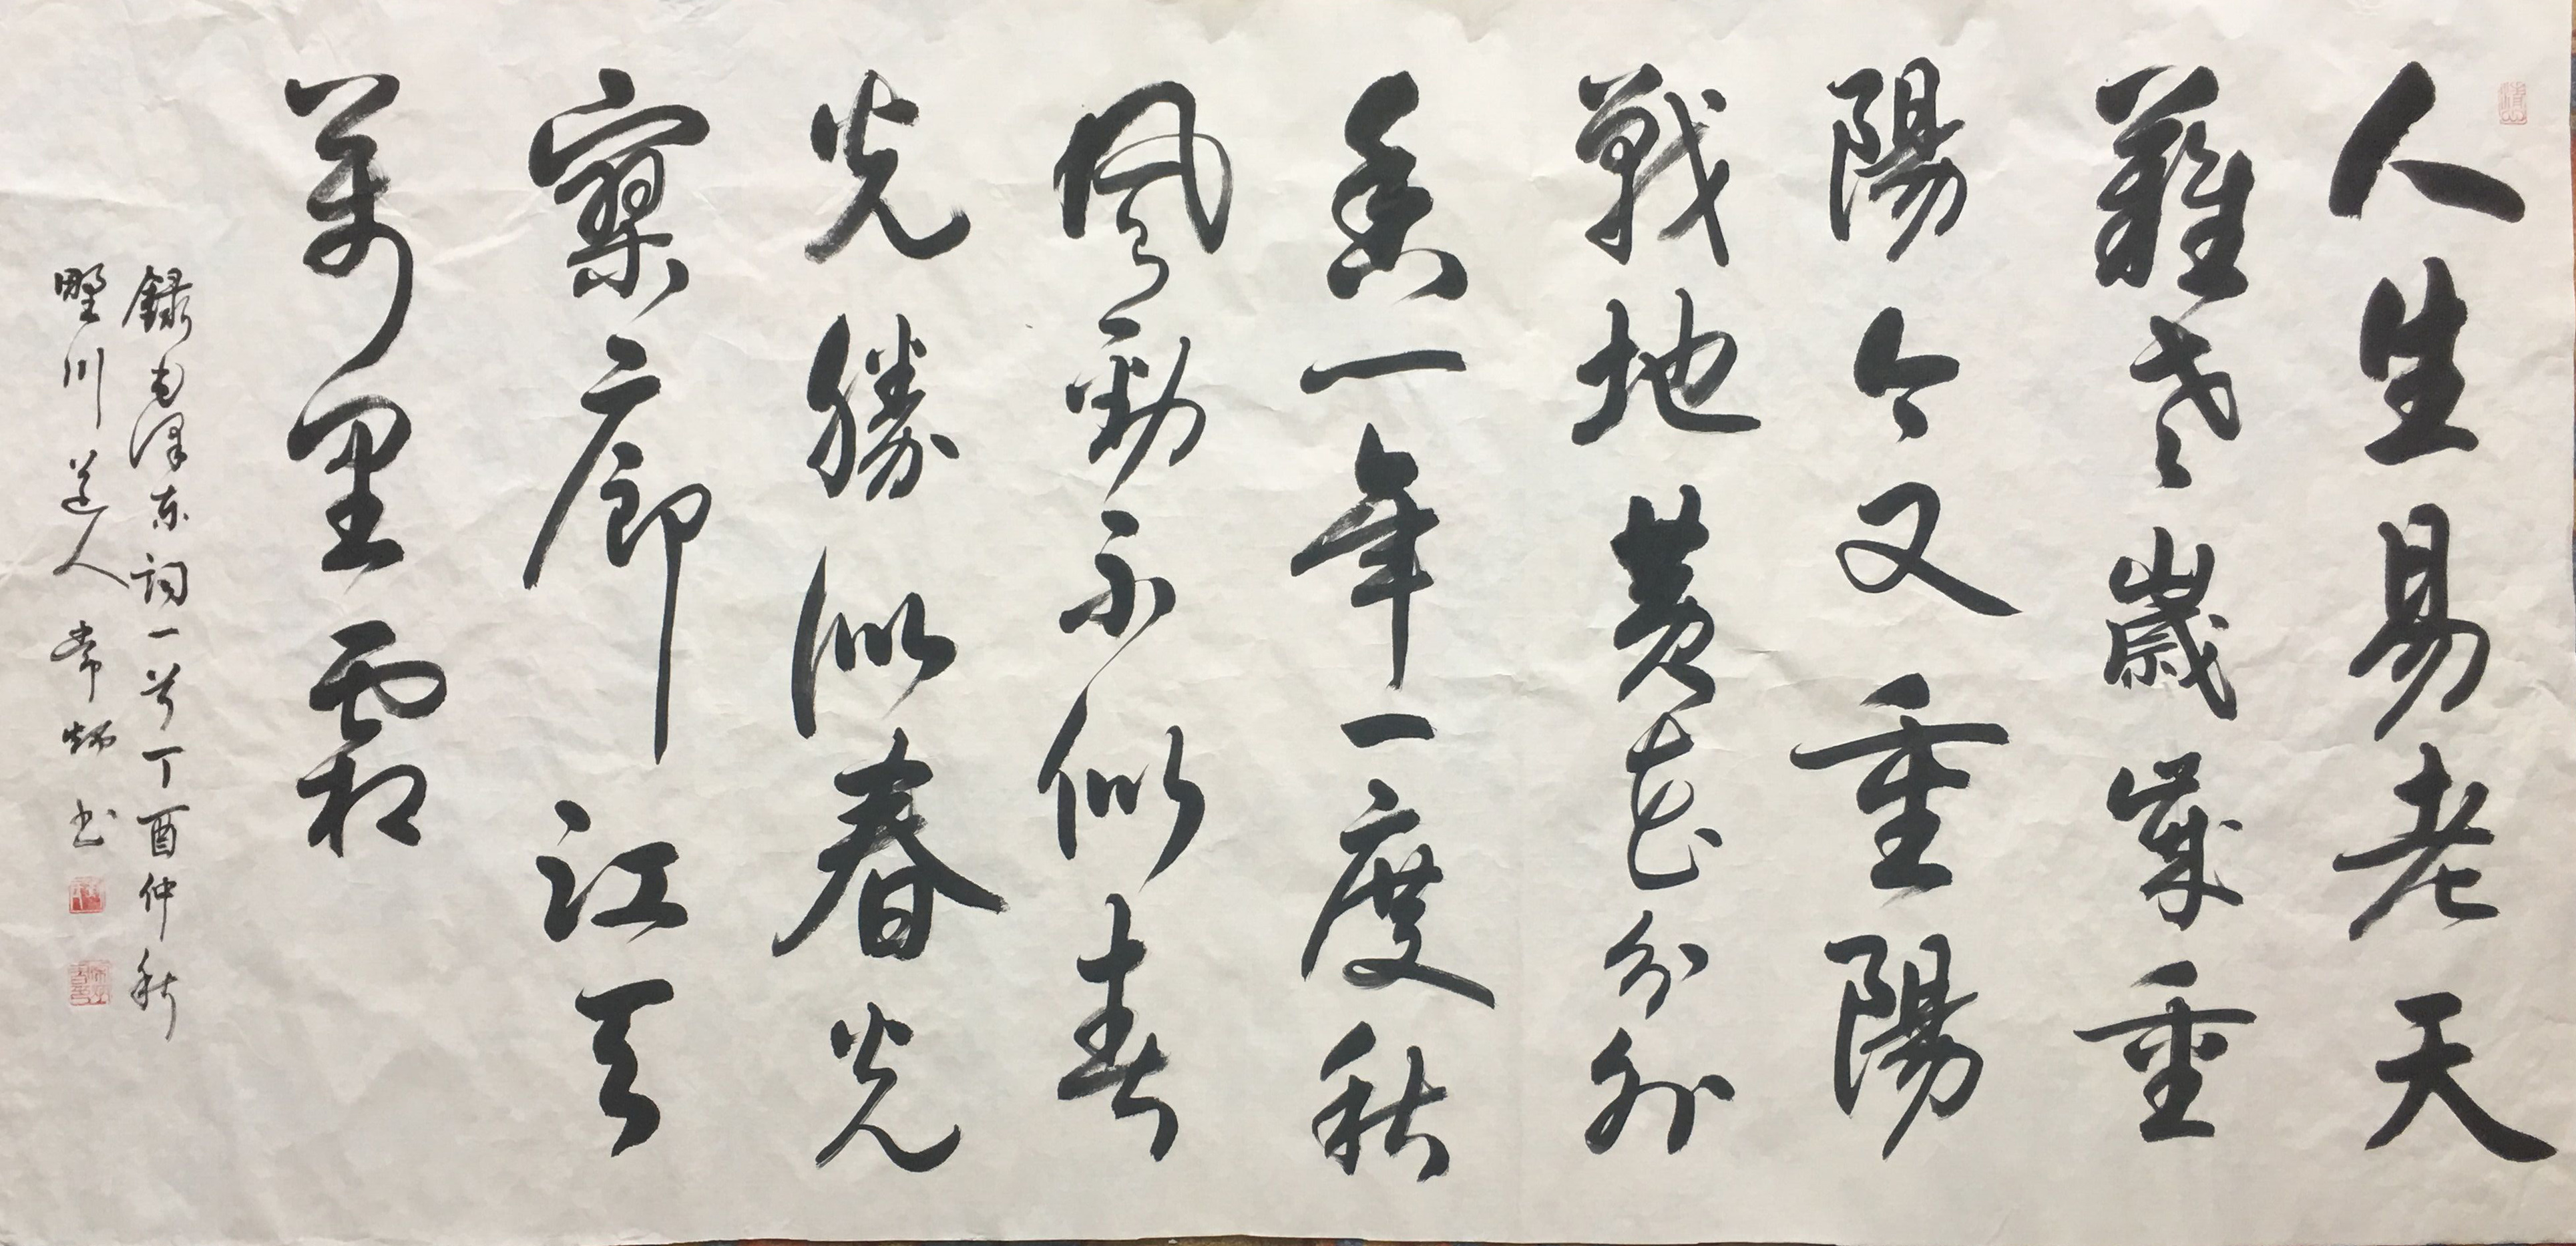 人生易老天
難老歲歲重
陽今又重陽
戰地黄花分外
香一年一度秋
風勁不似春
光勝似春光
寥廓江天
萬里霜
錄毛澤东词一首丁酉仲秋
墅川道人常炳书